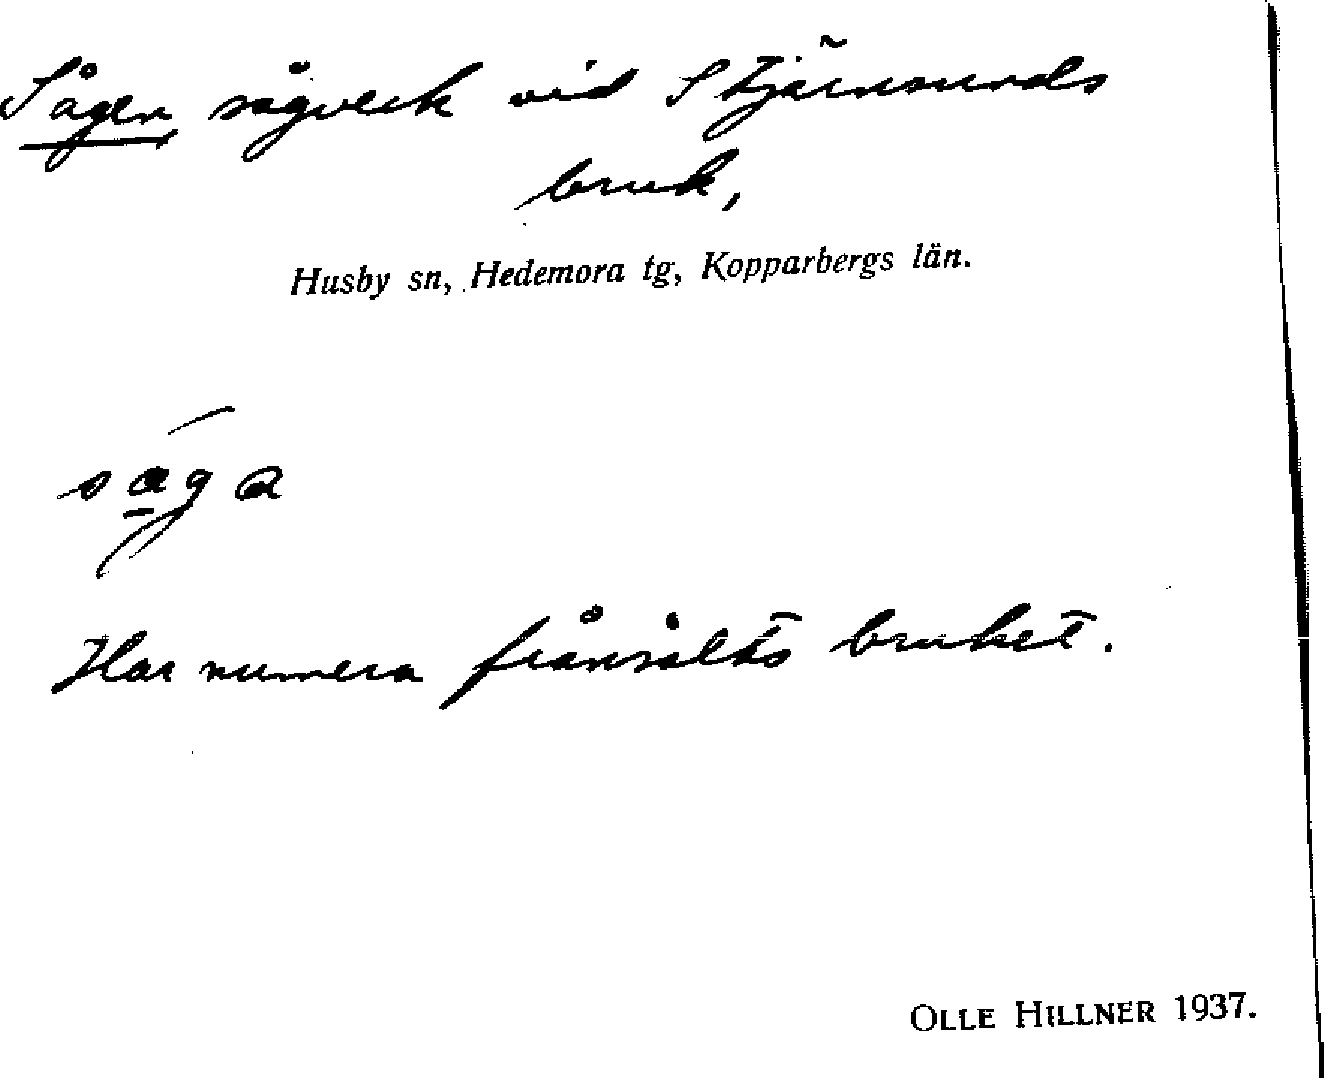 Sågen, sågverk vid Stjärnsunds
bruk,
Husby sn, Hedemora tg, Kopparbergs län.
saga
Har numera frånsålts bruket.
OLLE HILLNER 1937.